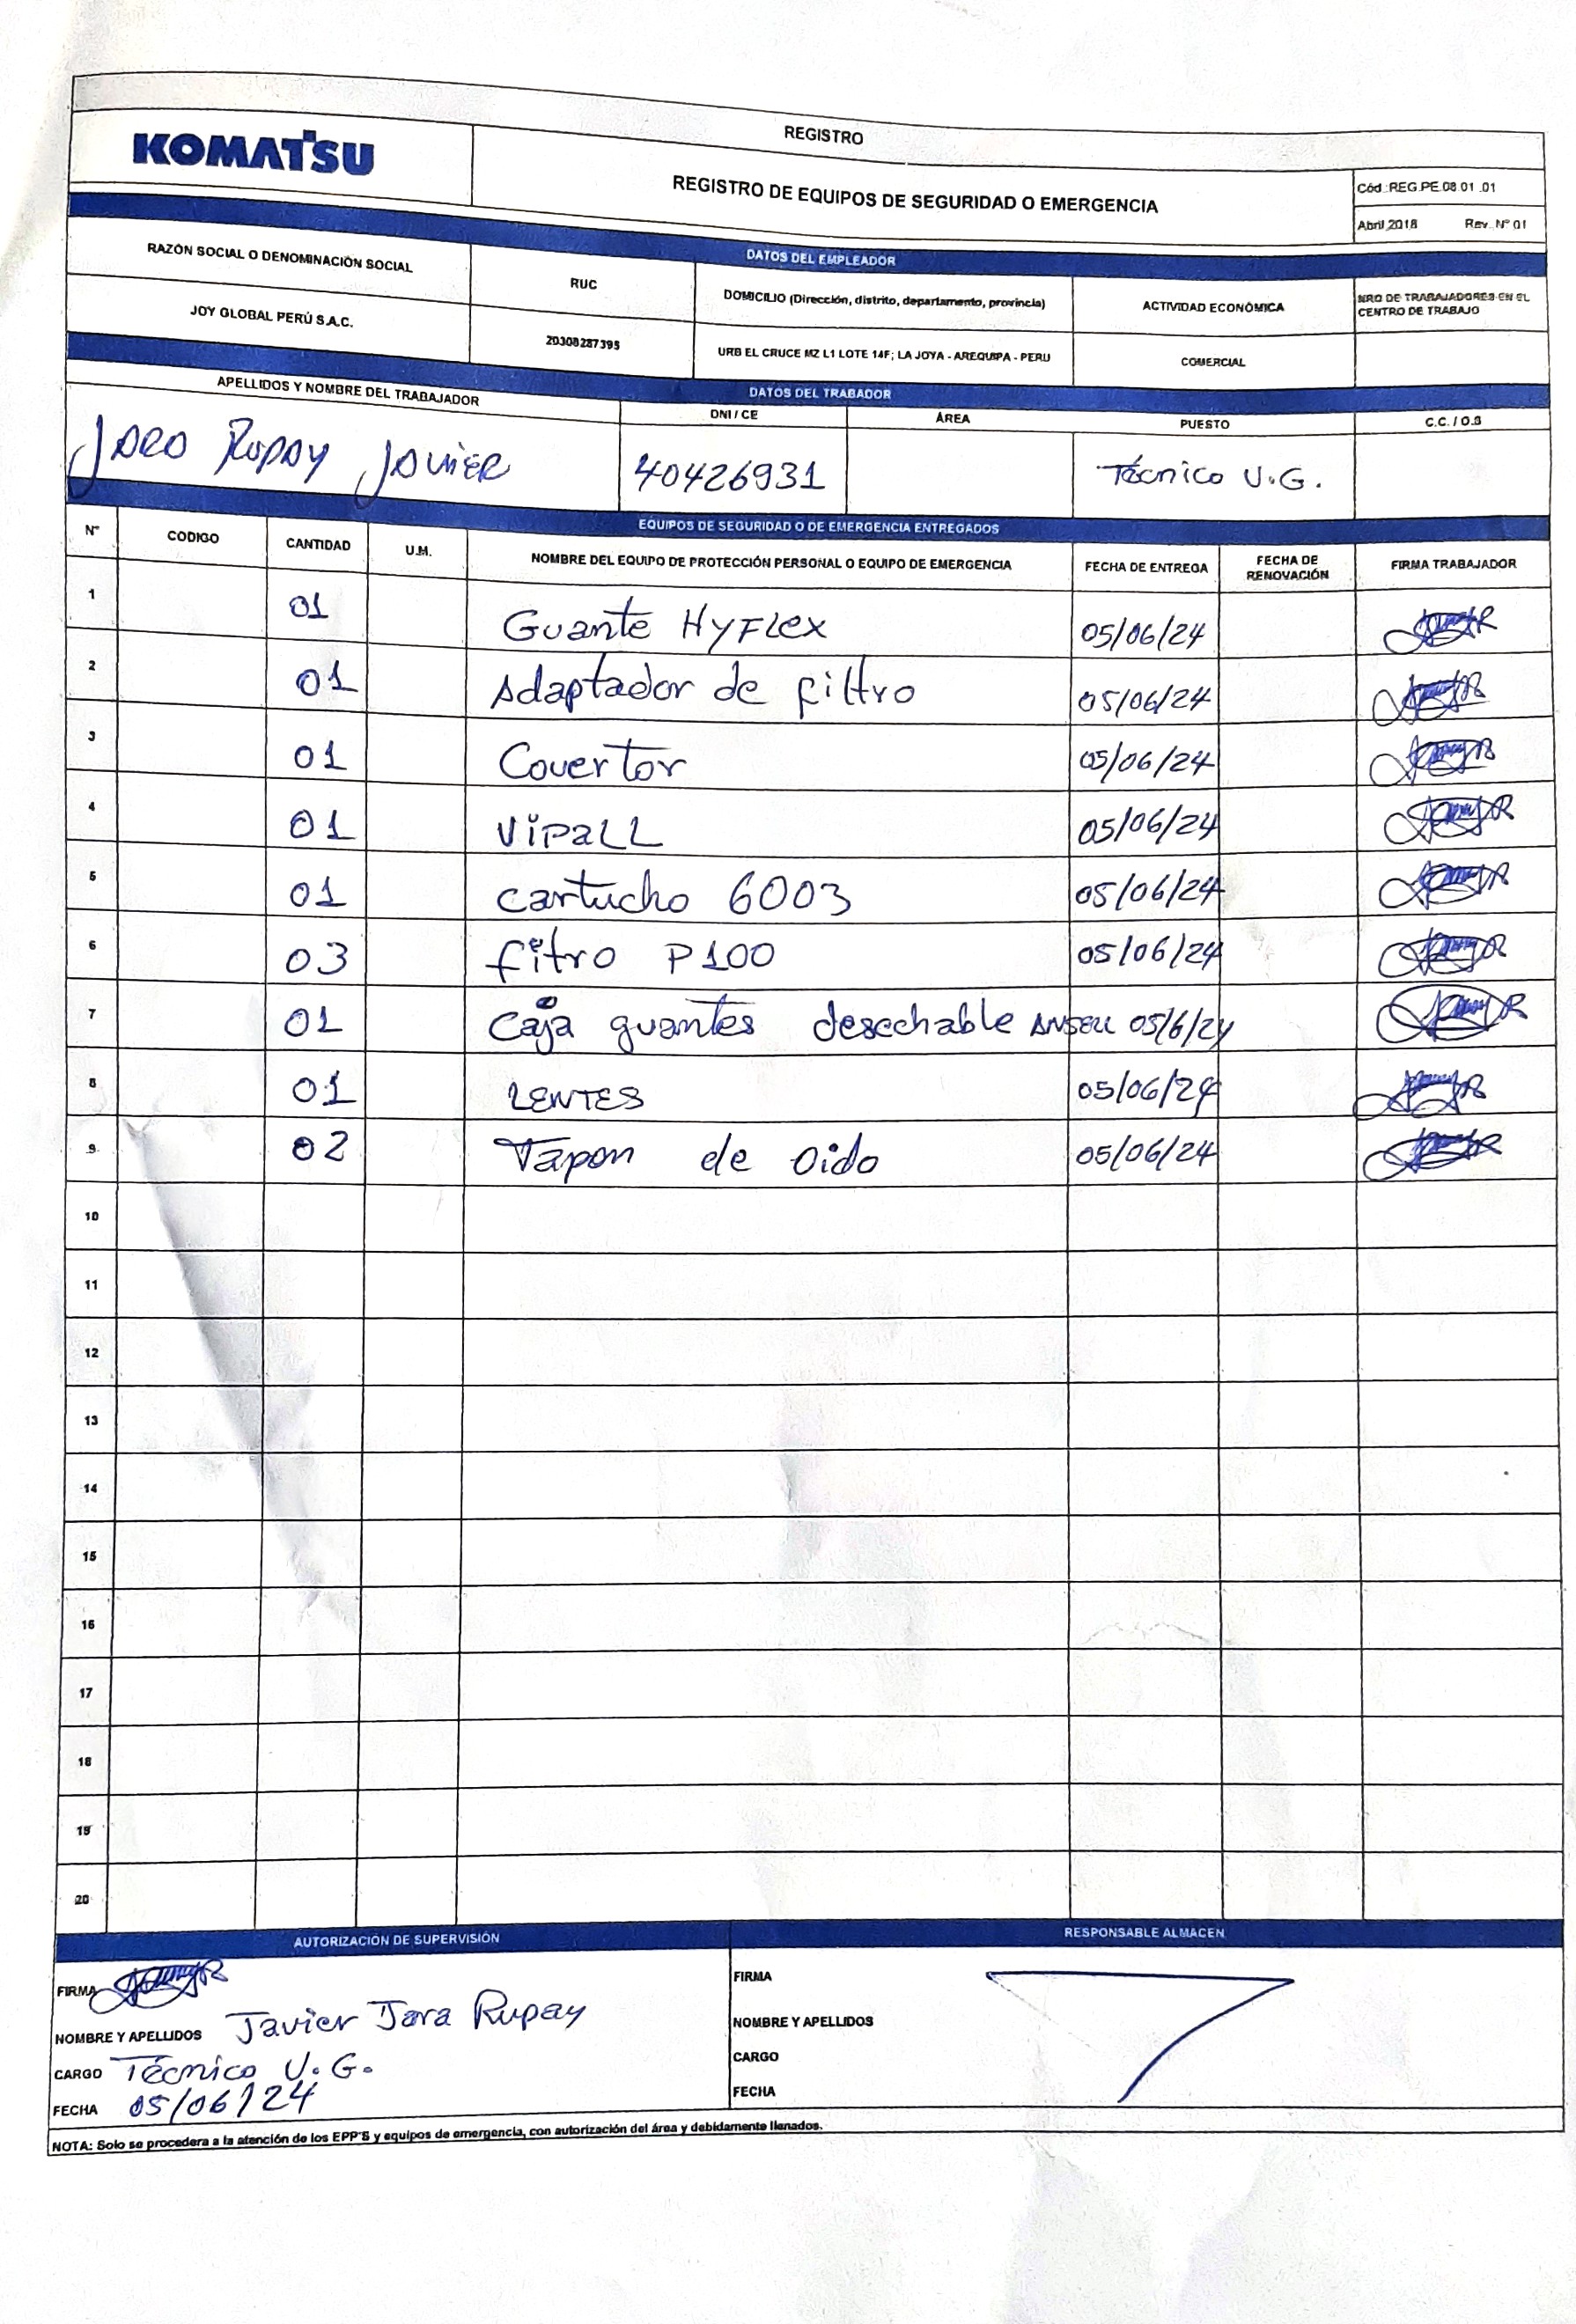 REGISTRO
KOMATSU
REGISTRO DE EQUIPOS DE SEGURIDAD O EMERGENCIA
Cód.:REG.PE.08.01 .01
Abril 2018 Rev. N° 01
DATOS DEL EMPLEADOR
RAZÓN SOCIAL O DENOMINACIÓN SOCIAL RUC DOMICILIO (Dirección, distrito, departamento, provincia) ACTIVIDAD ECONÓMICA NRO DE TRABAJADORES EN EL CENTRO DE TRABAJO
JOY GLOBAL PERÚ S.A.C. 20308287395 URB EL CRUCE MZ L1 LOTE 14F; LA JOYA - AREQUIPA - PERU COMERCIAL
DATOS DEL TRABADOR
APELLIDOS Y NOMBRE DEL TRABAJADOR DNI / CE ÁREA PUESTO C.C. / O.S
JARA RUPAY JAVIER 40426931 Técnico U.G.
EQUIPOS DE SEGURIDAD O DE EMERGENCIA ENTREGADOS
N° CODIGO CANTIDAD U.M. NOMBRE DEL EQUIPO DE PROTECCIÓN PERSONAL O EQUIPO DE EMERGENCIA FECHA DE ENTREGA FECHA DE RENOVACIÓN FIRMA TRABAJADOR
1 01 Guante HYFLex 05/06/24
2 01 Adaptador de filtro 05/06/24
3 01 Covertor 05/06/24
4 01 ViPaLL 05/06/24
5 01 cartucho 6003 05/06/24
6 03 fitro P100 05/06/24
7 01 Caja guantes desechable ANSELL 05/6/24
8 01 LENTES 05/06/24
9 02 Tapon de oido 05/06/24
10
11
12
13
14
15
16
17
18
19
20
AUTORIZACIÓN DE SUPERVISIÓN RESPONSABLE ALMACEN
FIRMA FIRMA
NOMBRE Y APELLIDOS Javier Jara Rupay NOMBRE Y APELLIDOS
CARGO Técnico U.G. CARGO
FECHA 05/06/24 FECHA
NOTA: Solo se procedera a la atención de los EPP'S y equipos de emergencia, con autorización del área y debidamente llenados.